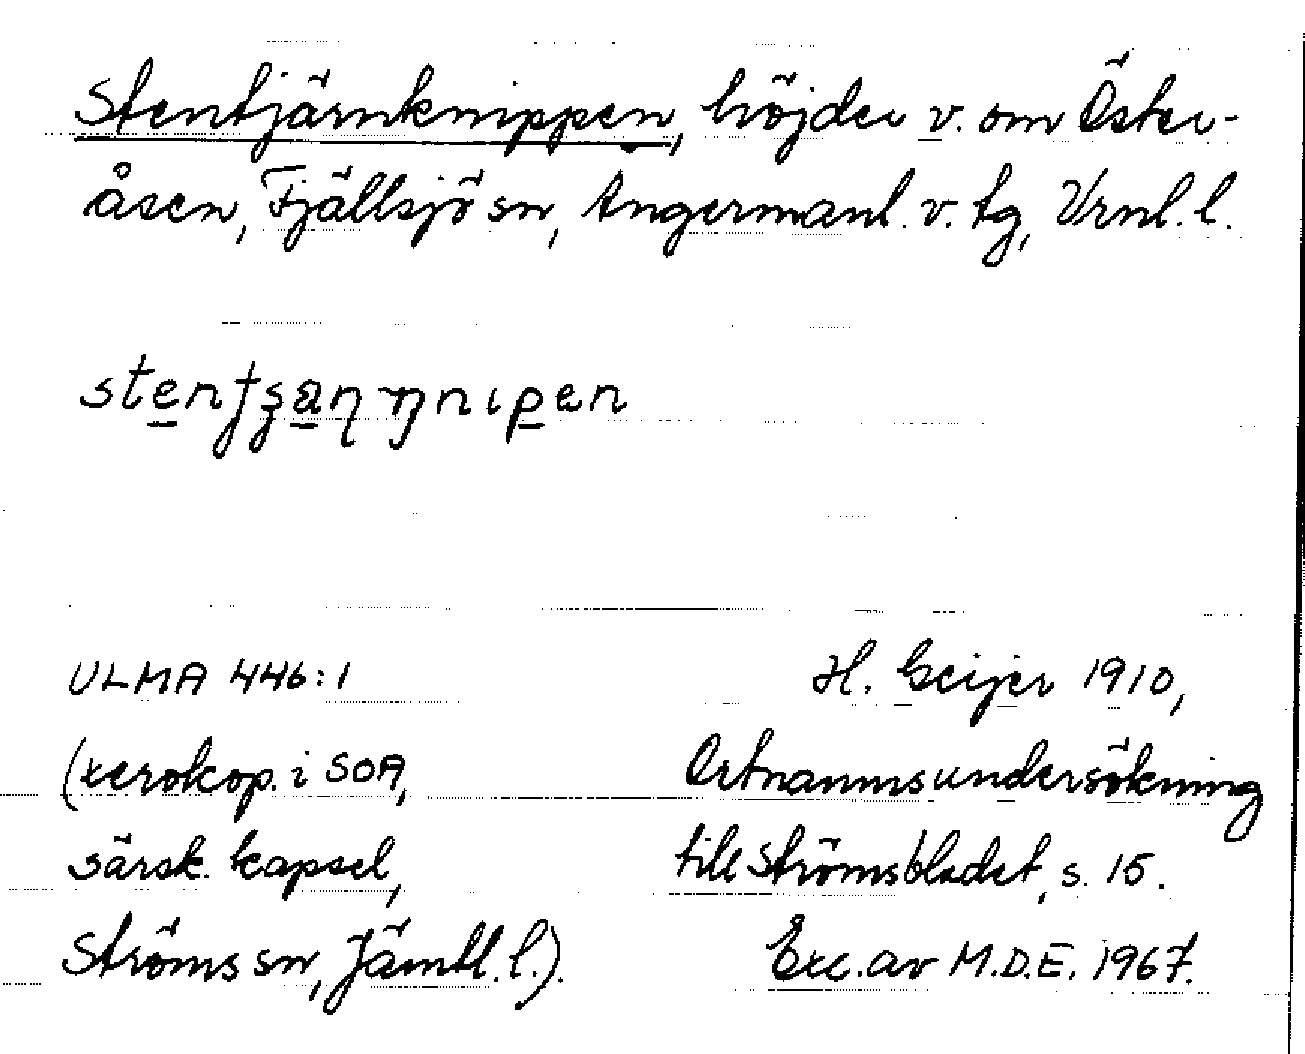 Stentjärnknippen, höjder v. om Öster-
åsen, Fjällsjö sn, Ångermanl. v. tg, Vrnl. l.
ULMA 446:1
(xerokop. i SOA,
särsk. kapsel,
Ströms sn, Jämtl. l.).
H. Geijer 1910,
Ortnamnsundersökning
till Strömsbladet, s. 15.
Exc. av M.D.E. 1967.